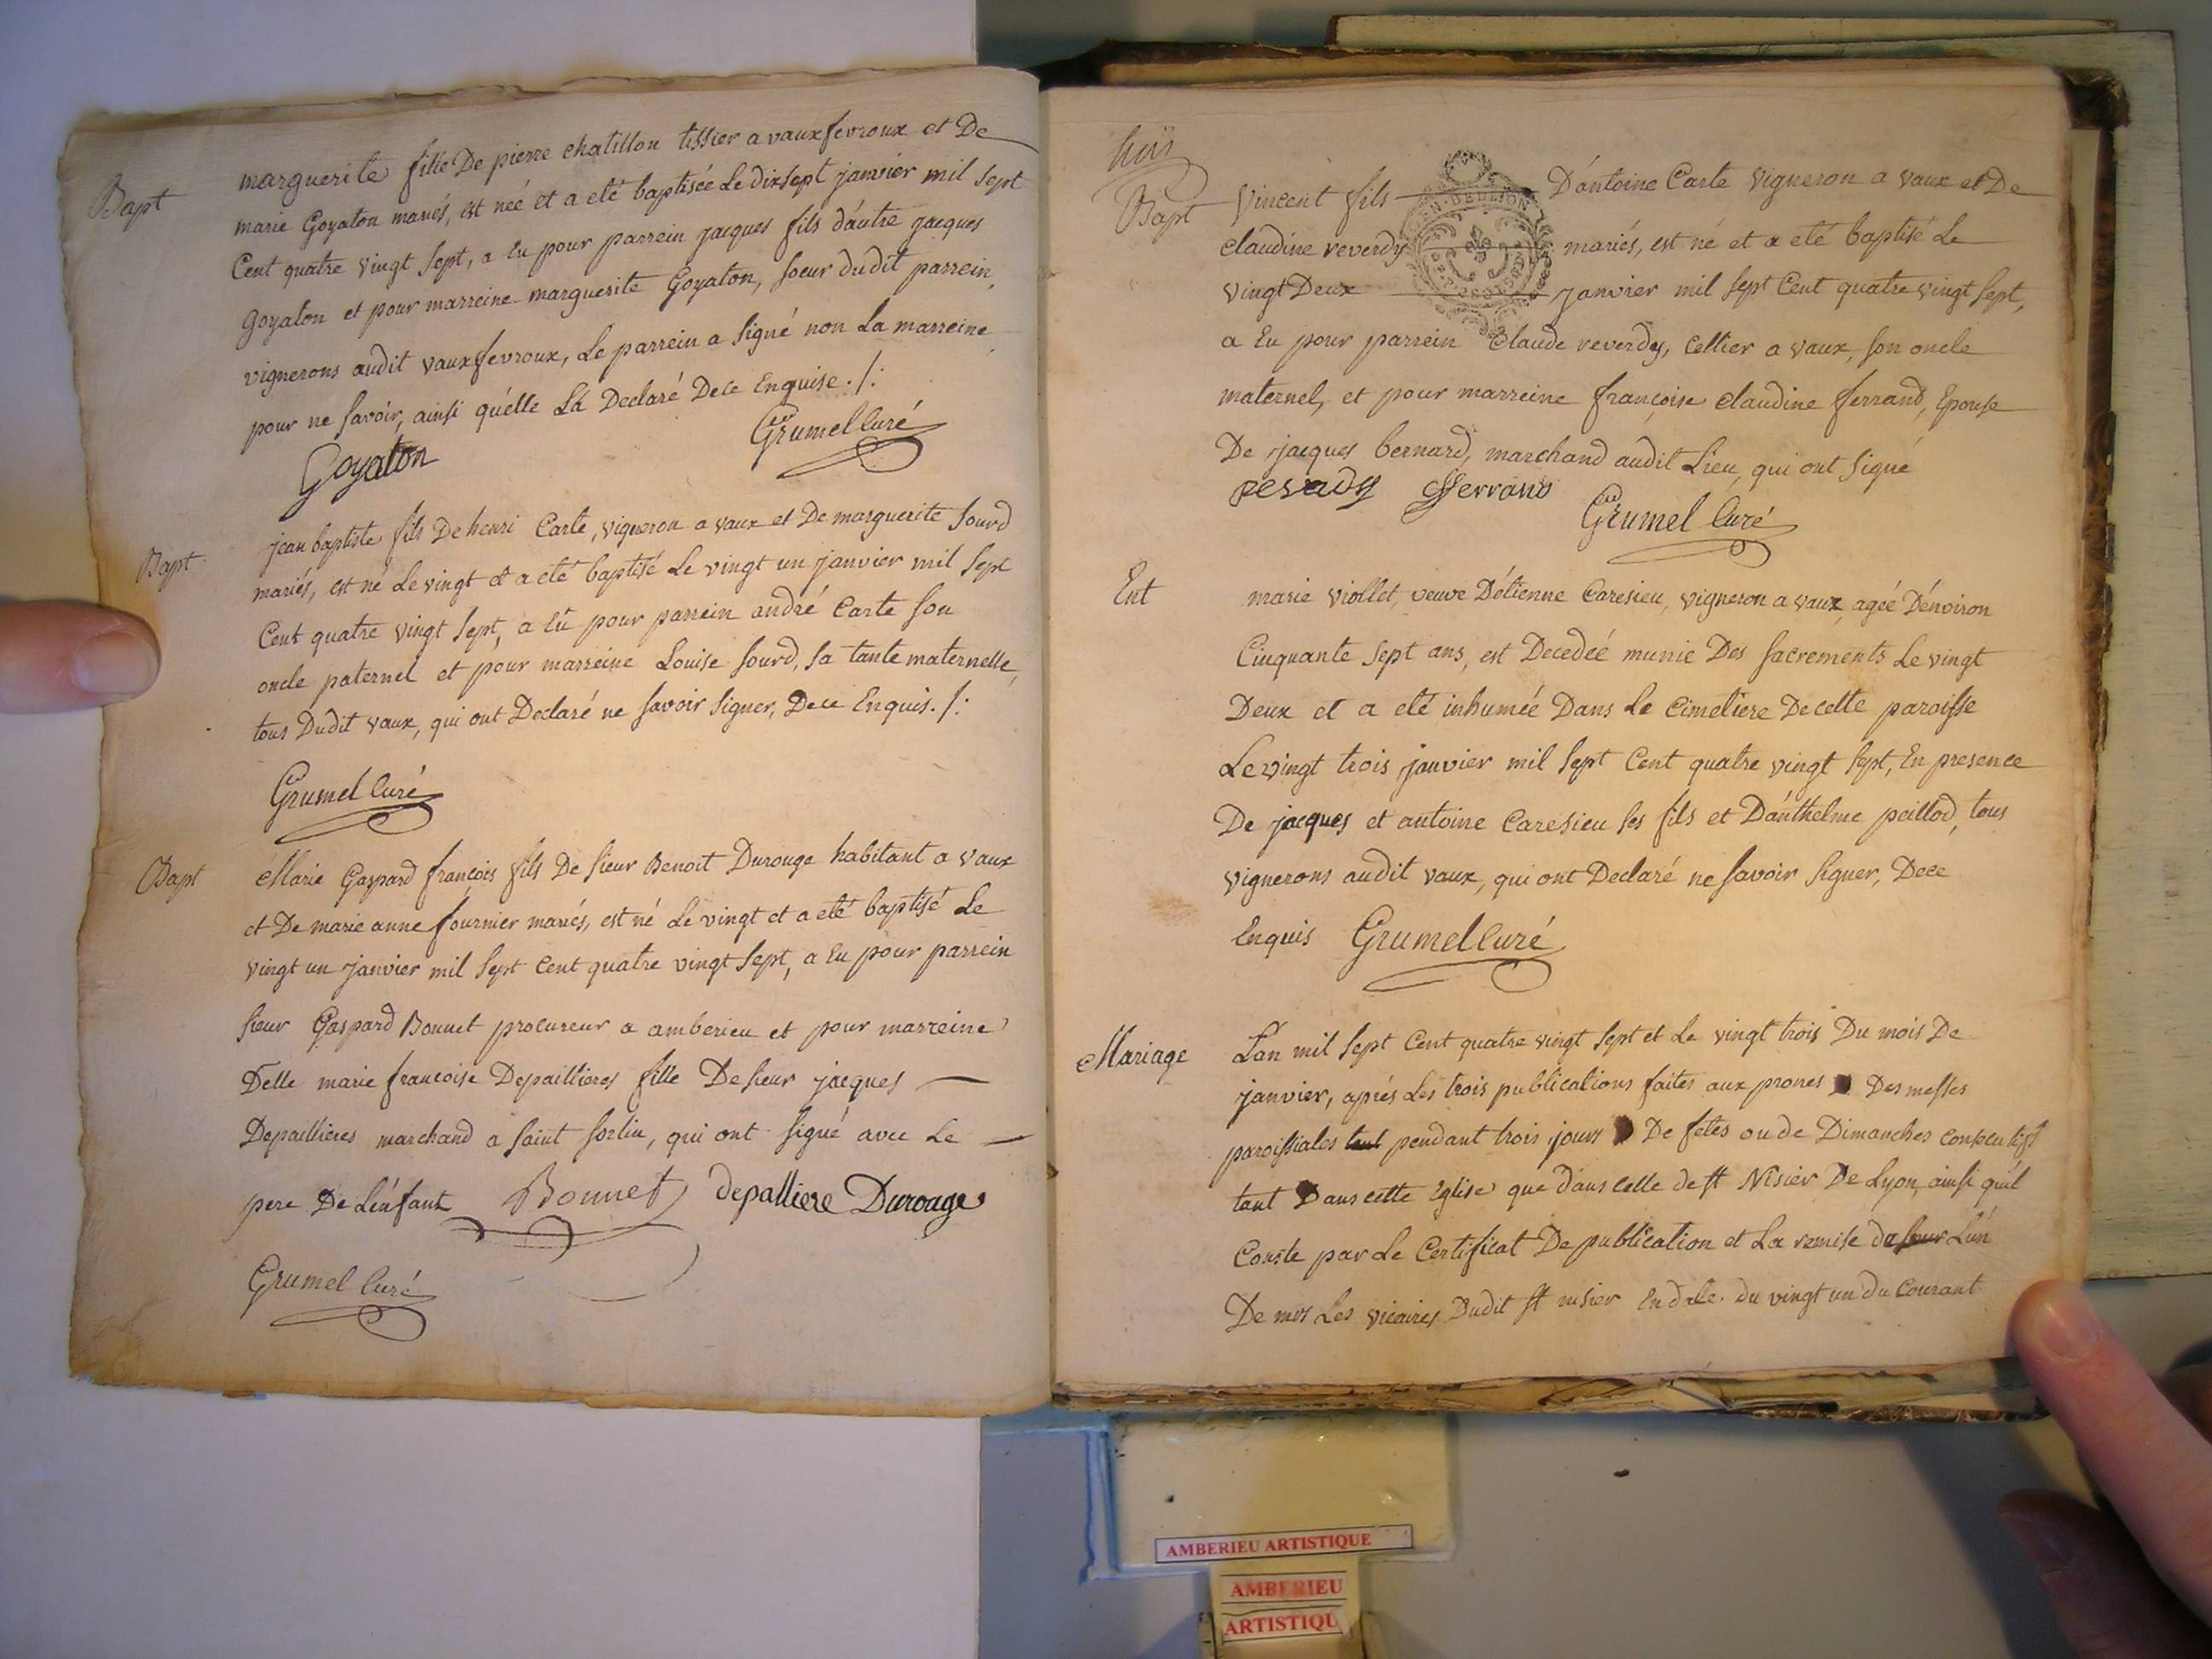 Bapt
marguerite fille De pierre chatillon tissier a vauxfevroux et De
marie Goyaton mariés, est née et a eté baptisée Le dixsept janvier mil sept
Cent quatre vingt sept, a Eu pour parrein jacques fils d'autre jacques
Goyaton et pour marreine marguerite Goyaton, soeur dudit parrein,
vignerons audit vauxfevroux, Le parrein a signé non La marreine
pour ne savoir, ainsi qu'elle La Declaré Dece Enquise ./:
Goyaton Grumel Curé
Bapt
jean baptiste fils De henri Carte, vigneron a vaux et De marguerite Sourd
mariés, est né Le vingt et a eté baptisé Le vingt un janvier mil sept
Cent quatre vingt sept, a Eu pour parrein andré Carte son
oncle paternel et pour marreine Louise Sourd, sa tante maternelle,
tous Dudit vaux, qui ont Declaré ne savoir signer, Dece Enquis ./:
Grumel Curé
Bapt
Marie Gaspard françois fils De sieur Benoit Durouge habitant a vaux
et De marie anne fournier mariés, est né Le vingt et a eté baptisé Le
vingt un janvier mil sept Cent quatre vingt sept, a Eu pour parrein
sieur Gaspard Bonnet procureur a amberieu et pour marreine
Delle marie francoise Depaillieres fille De sieur jacques
Depaillieres marchand a saint sorlin, qui ont signé avec Le
pere De L'enfant Bonnet depalliere Durouge
Grumel Curé
huit
Bapt
Vincent fils D'antoine Carte vigneron a vaux et De
claudine reverdy mariés, est né et a eté baptisé Le
vingt Deux janvier mil sept Cent quatre vingt sept,
a Eu pour parrein Claude reverdy, Cellier a vaux, son oncle
maternel, et pour marreine françoise claudine ferrand, Epouse
De jacques bernard, marchand audit Lieu, qui ont signé
Grumel Curé
Ent
marie viollet, veuve D'etienne Caresieu, vigneron a vaux, ageé D'environ
Cinquante sept ans, est Decedeé munie Des sacrements Le vingt
Deux et a eté inhumée Dans Le Cimetiere De cette paroisse
Le vingt trois janvier mil sept Cent quatre vingt sept, En presence
De jacques et antoine Caresieu ses fils et D'anthelme peillod, tous
vignerons audit vaux, qui ont Declaré ne savoir signer, Dece
Enquis Grumel Curé
Mariage
L'an mil sept Cent quatre vingt sept et Le vingt trois Du mois De
janvier, aprés Les trois publications faites aux prones Des messes
paroissiales tant pendant trois jours De fetes ou de Dimanches consecutifs
tant Dans cette Eglise que dans celle de st Nisier De Lyon, ainsi qu'il
Conste par Le Certificat De publication et La remise L'un
De mrs Les vicaires Dudit st nisier En date du vingt un du Courant
AMBERIEU ARTISTIQUE
AMBERIEU
ARTISTIQU